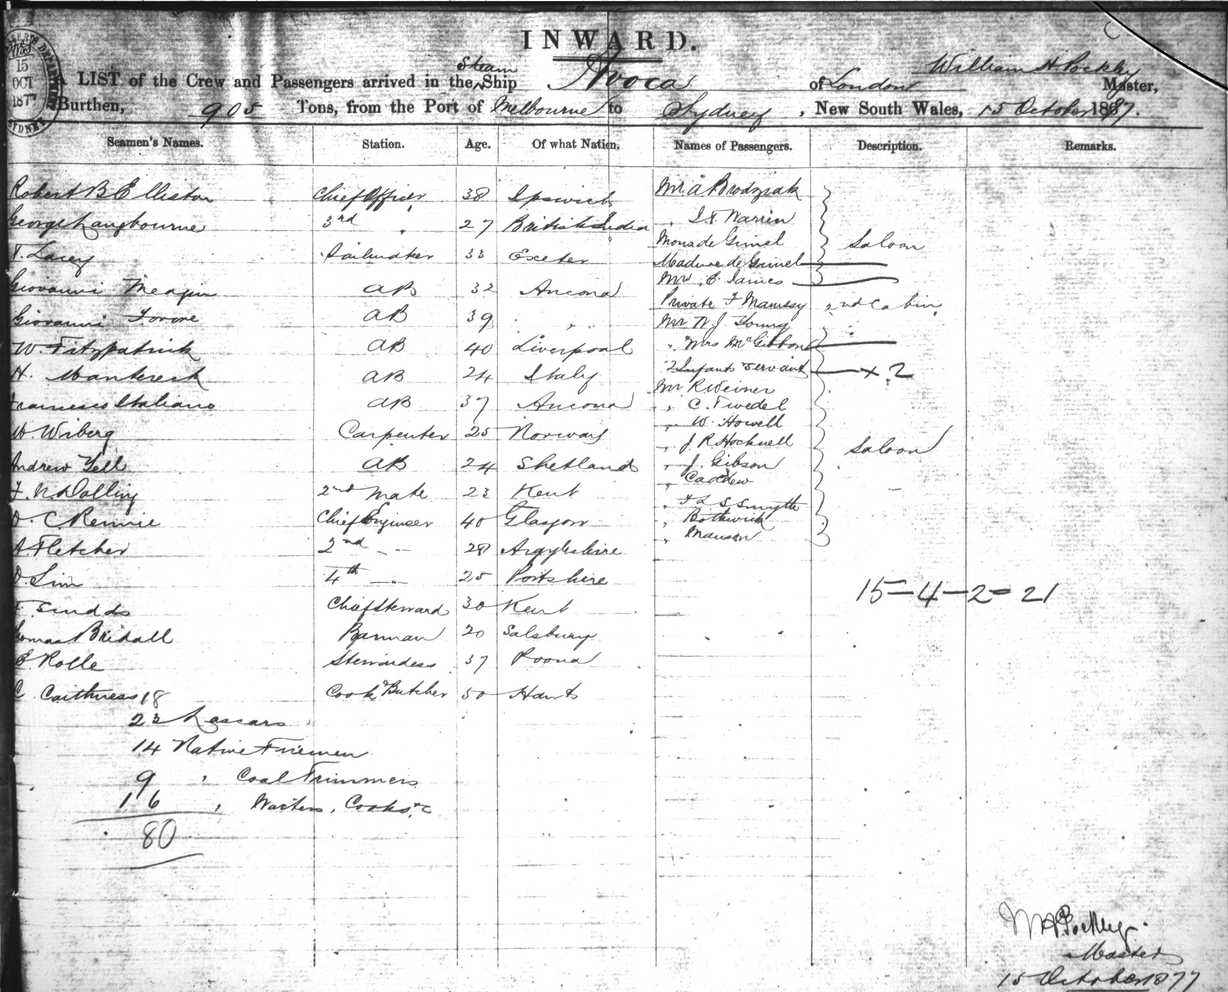 INWARD.
15
OCT
1877
SYDNEY
LIST of the Crew and Passengers arrived in the Steam Ship Avoca of London William H Pockley Master,
Burthen, 905 Tons, from the Port of Melbourne to Sydney, New South Wales, 15 October 1877.
Seamen's Names. Station. Age. Of what Nation. Names of Passengers. Description. Remarks.
Robert B Elliston Chief Officer 38 Ipswich Mr A Brodziak
George Langbourne 3rd " 27 British India " Warren
Lacey Sailmaker 33 Exeter Mons de Grimel Saloon
Madme de Grimel
Giovanni AB 32 Ancona Mrs E James
Private F 2nd Cabin
Giovanni AB 39 " " Mr W J Young
W. Fitzpatrick AB 40 Liverpool " Mrs McGibbon
H. AB 24 Italy 2 Infants Servant + 2
Mr R Weiner
Francesco Italiano AB 37 Ancona " C. Twedel
" W. Howell
Wiberg Carpenter 25 Norway " J R Hocknell Saloon
Andrew Yell AB 24 Shetland " J. Gibson
" Caddew
F. N. Dolling 2nd Mate 23 Kent " Smyth
D. C Rennie Chief Engineer 40 Glasgow " Bothwick
A Fletcher 2nd - - 28 Argyleshire " Manson
D. Sim 4th - 25 15-4-2=21
Sindds Chief Steward 30 Kent
Thomas Bridall Barman 20 Salsbury
E Rolle Stewardess 37 Poona
C. Caithness 18 Cook & Butcher 50 Hants
23 Lascars
14 Native Firemen
9 " Coal Trimmers
16 " Waiters, Cooks &c
80
W H Pockley
Master
15 October 1877